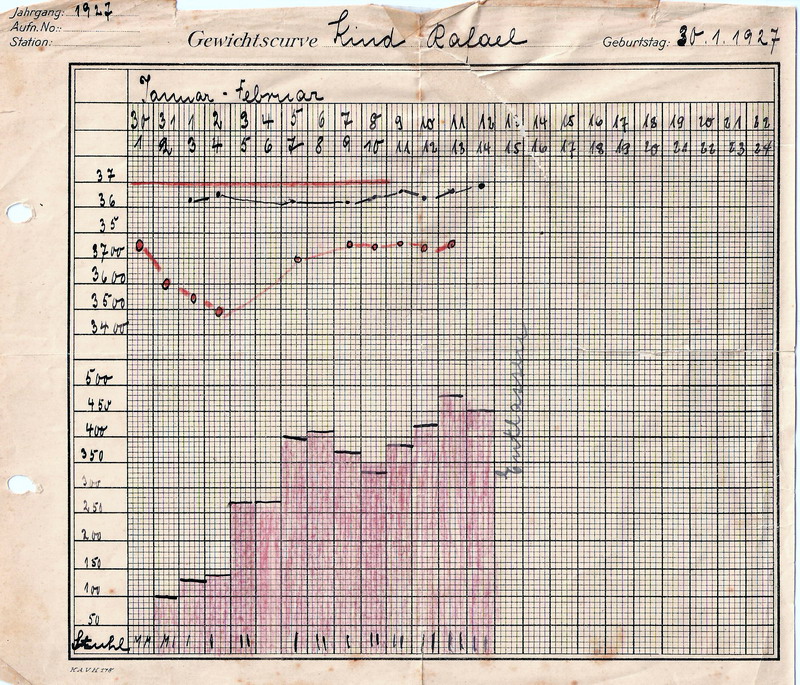 Jahrgang: 1927
Aufn.No:
Station:
Gewichtscurve Kind Rafael Geburtstag: 30.1.1927
Januar - Februar
30 31 1 2 3 4 5 6 7 8 9 10 11 12 13 14 15 16 17 18 19 20 21 22
1 2 3 4 5 6 7 8 9 10 11 12 13 14 15 16 17 18 19 20 21 22 23 24
37
36
35
3700
3600
3500
3400
500
450
400
350
300
250
200
150
100
50
Entlassen
Stuhl